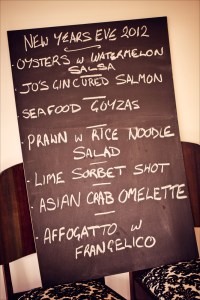 NEW YEARS EVE 2012
OYSTERS W WATERMELON
SALSA
JO'S GINCURED SALMON
SEAFOOD GOYZAS
PRAWN W RICE NOODLE
SALAD
LIME SORBET SHOT
ASIAN CRAB OMELETTE
AFFOGATTO W
FRANGELICO